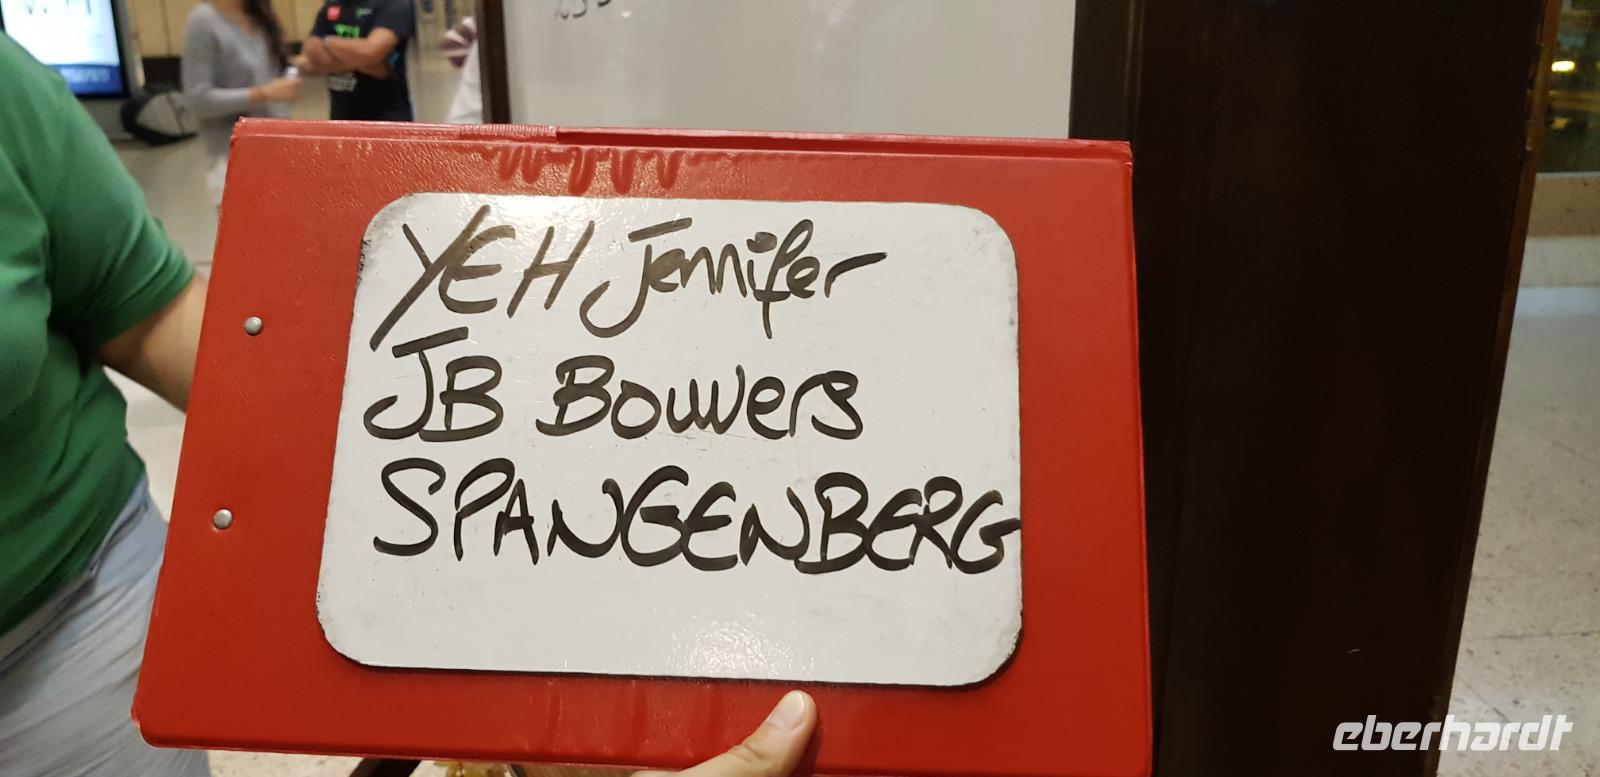 YEH Jennifer
JB Bouwers
SPANGENBERG
eberhardt